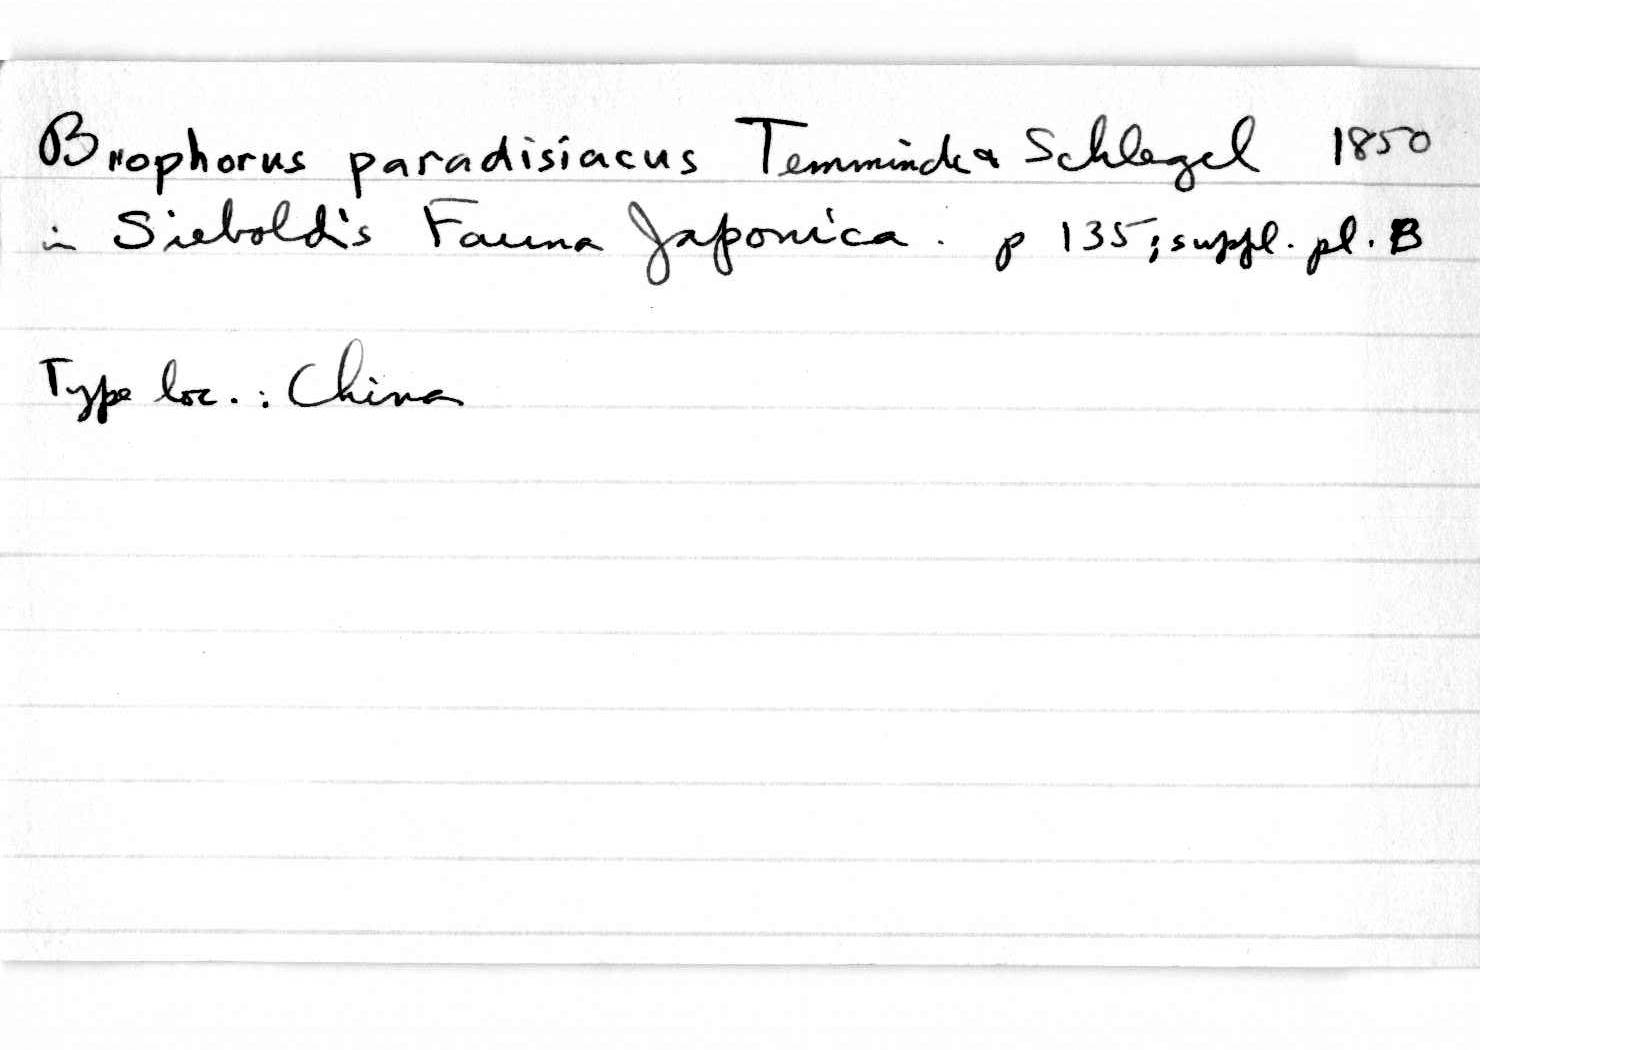 Bnophorus paradisiacus Temminck & Schlegel 1850
in Siebold's Fauna Japonica. p 135; suppl. pl. B
Type loc.: China